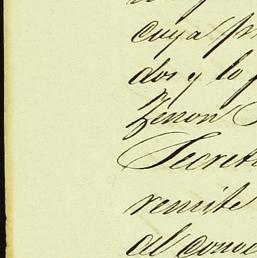 cuya pr
dos y lo f
Zenon
Secreta
remite
al conve